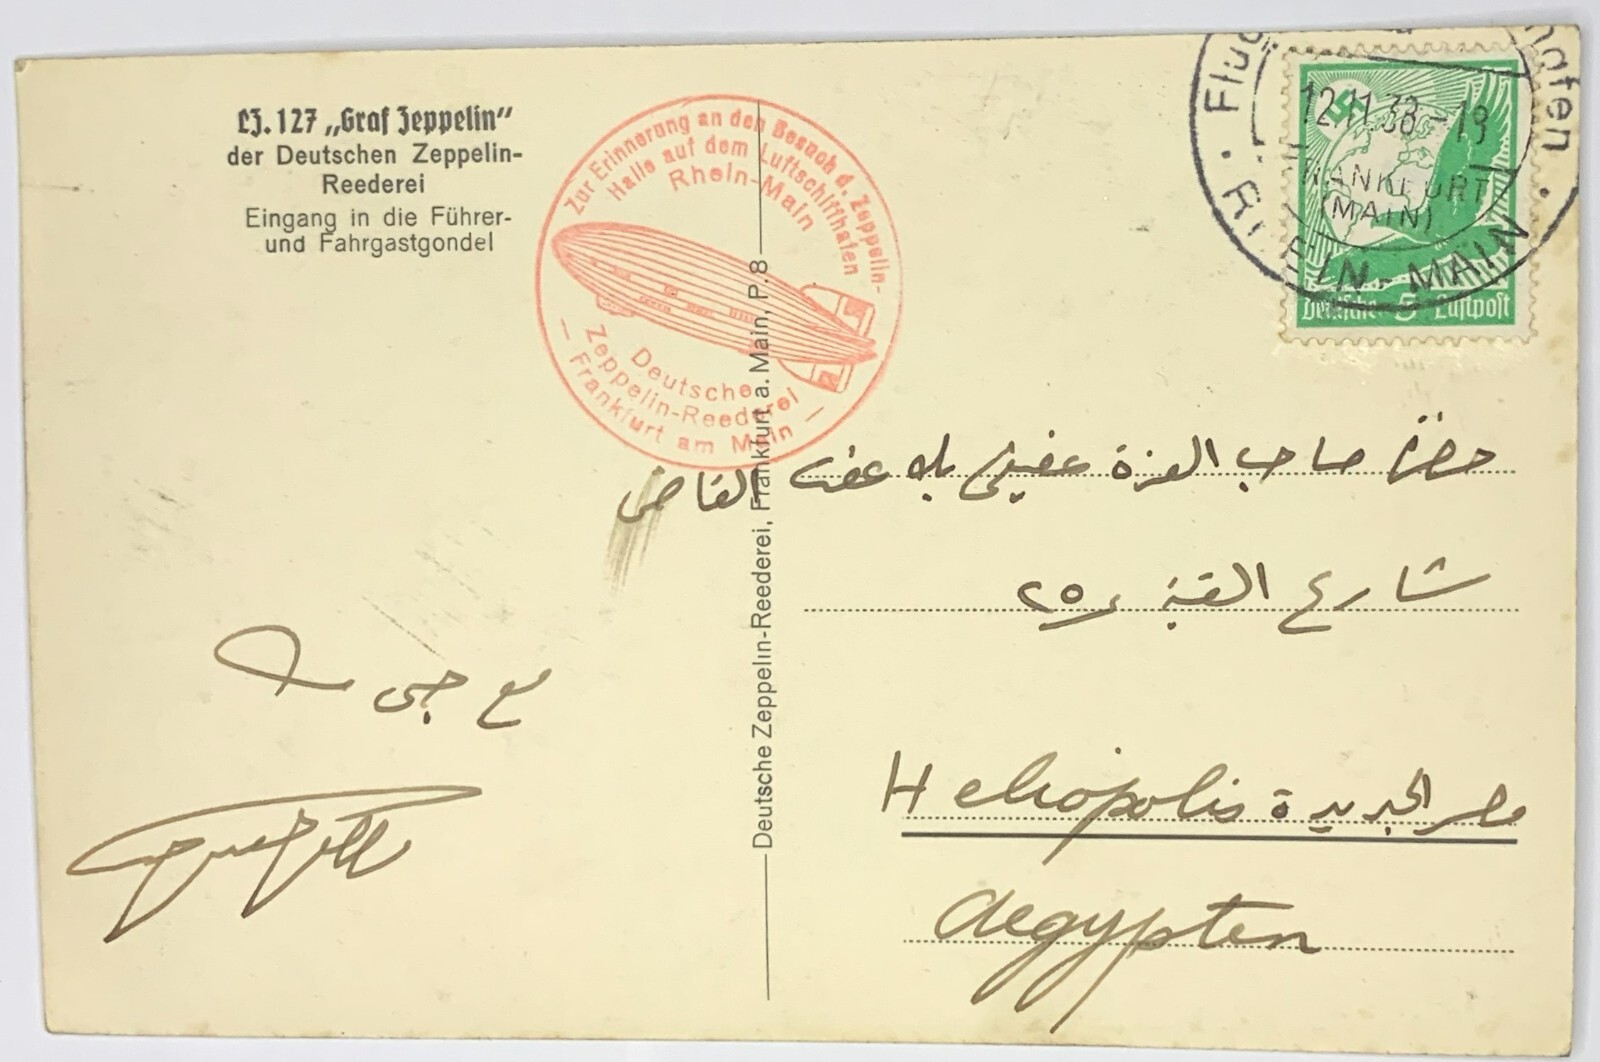 LZ. 127 „Graf Zeppelin"
der Deutschen Zeppelin-
Reederei
Eingang in die Führer-
und Fahrgastgondel
Zur Erinnerung an den Besuch d. Zeppelin-
Halle auf dem Luftschiffhafen
Rhein-Main
Deutsche
Zeppelin-Reederei
— Frankfurt am Main —
Deutsche Zeppelin-Reederei, Frankfurt a. Main, P. 8
12.11.38-19
FRANKFURT
(MAIN)
RHEIN-MAIN
Deutsche 5 Luftpost
حضرة صاحب العزة عفيفي بك عفت القاضى
شارع القبة ٢٥
مصر الجديدة Heliopolis
Aegypten
مع